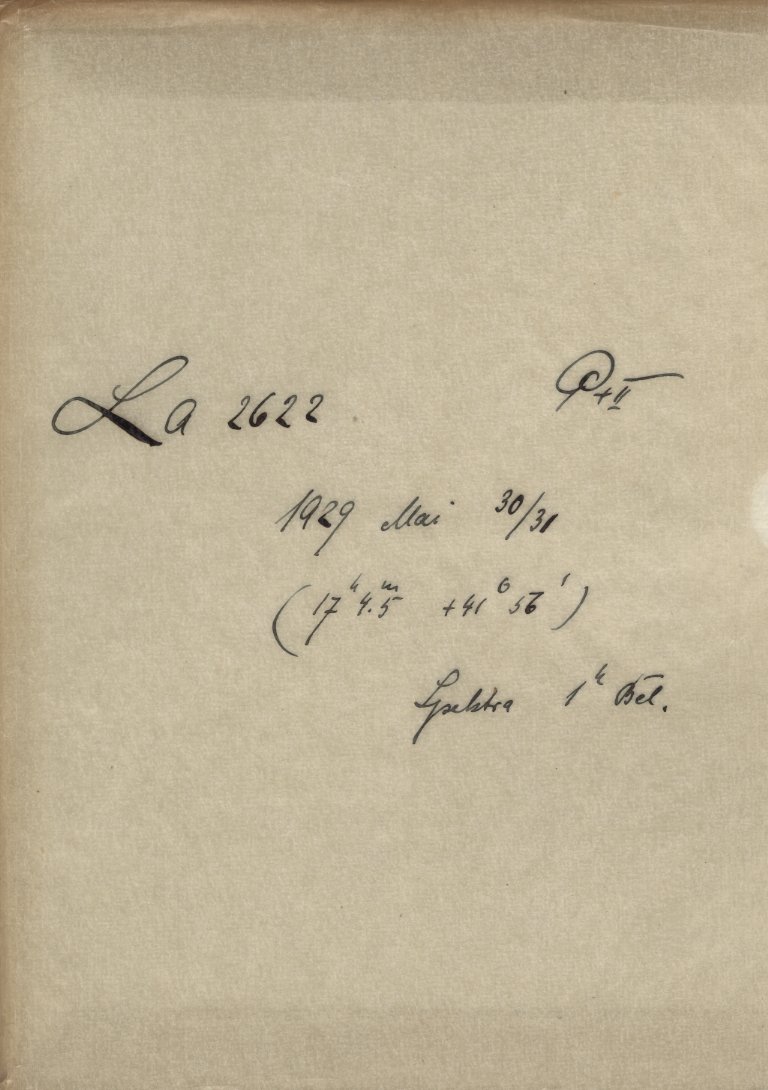 La 2622 P+II
1929 Mai 30/31
(17h 4.m5 +41° 56')
Spektra 1h Bel.